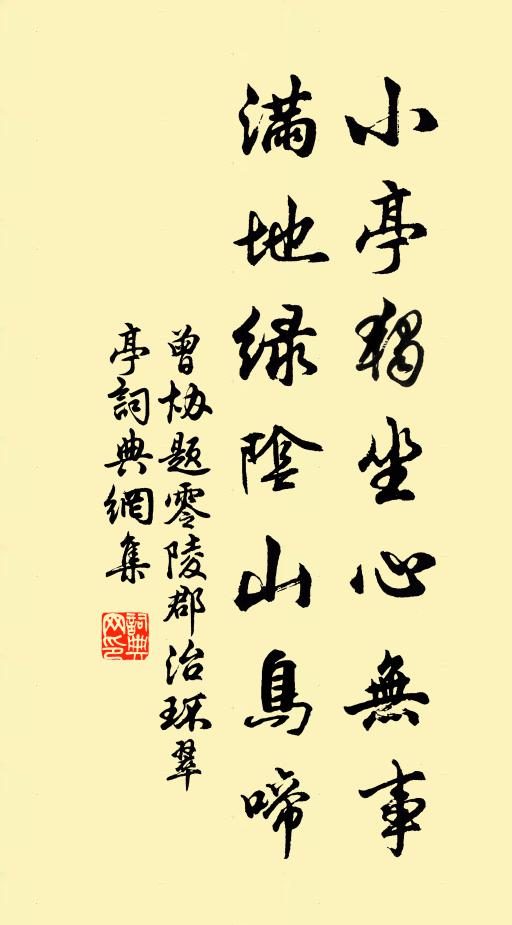 小亭獨坐心無事
滿地綠陰山鳥啼
曾协题零陵郡治环翠
亭詞典網集
詞典
网印